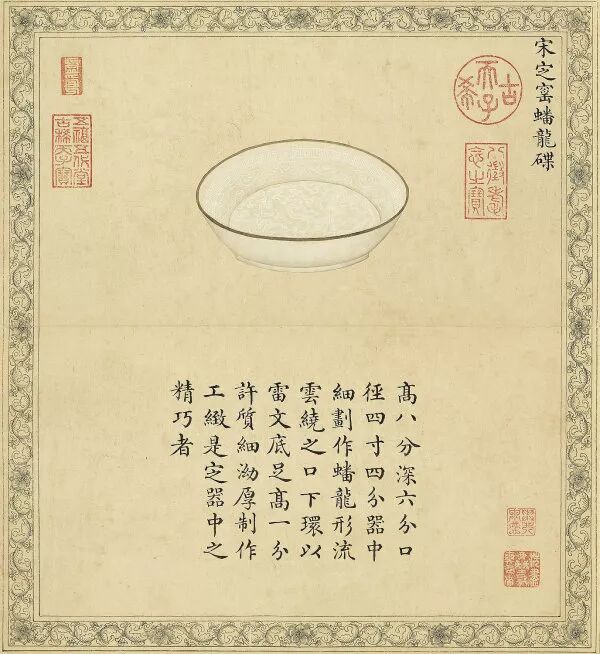 宋㝎窰蟠龍碟
古希
天子
八徵耄
念之寶
髙八分深六分口
徑四寸四分器中
細劃作蟠龍形流
雲繞之口下環以
雷文底足髙一分
許質細泑厚制作
工緻是㝎器中之
精巧者
五福五代堂
古稀天子寶